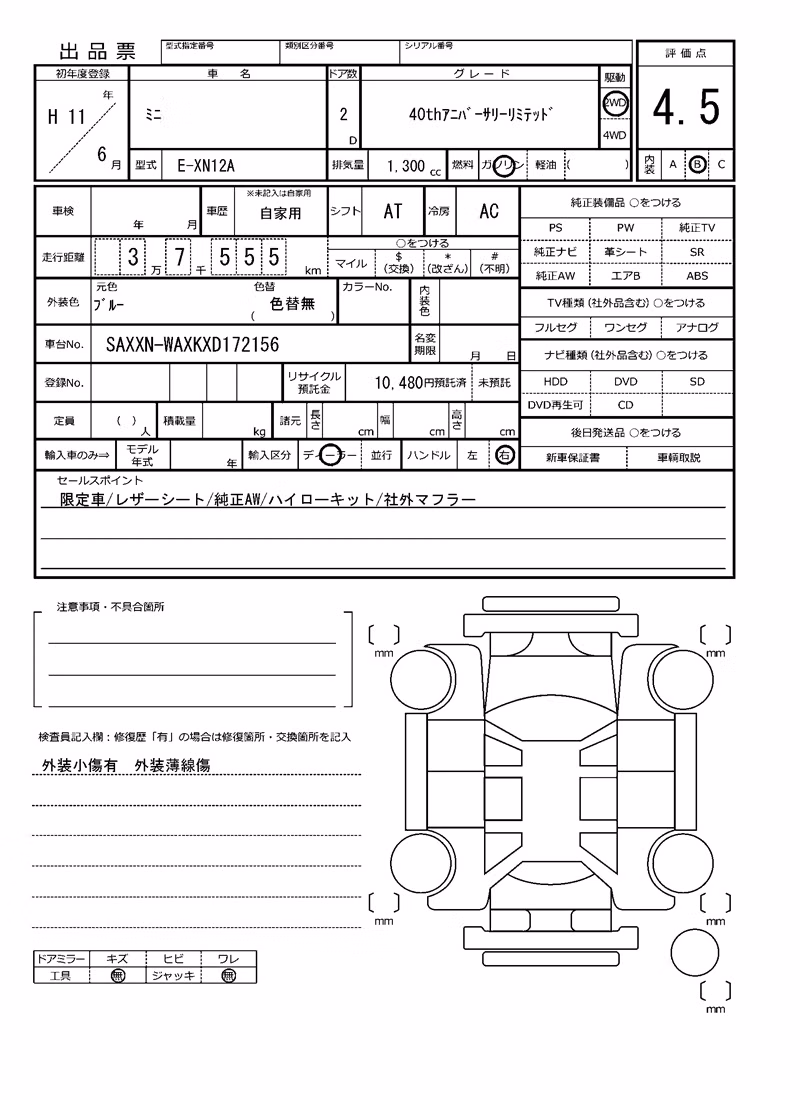 出品票
型式指定番号 類別区分番号 シリアル番号
評価点
初年度登録 車名 ドア数 グレード 駆動
H 11 年 6 月
ミニ
2 D
40thアニバーサリーリミテッド
2WD
4WD
4.5
型式 E-XN12A 排気量 1,300 cc 燃料 ガソリン 軽油 ( )
内装 A B C
車検 年 月 車歴 ※未記入は自家用 自家用 シフト AT 冷房 AC
走行距離 3 万 7 千 5 5 5 km
○をつける
マイル $(交換) *(改ざん) #(不明)
外装色 元色 ブルー 色替 ( 色替無 ) カラーNo. 内装色
車台No. SAXXN-WAXKXD172156 名変期限 月 日
登録No. リサイクル預託金 10,480円預託済 未預託
定員 ( ) 人 積載量 kg 諸元 長さ cm 幅 cm 高さ cm
輸入車のみ⇒ モデル年式 年 輸入区分 ディーラー 並行 ハンドル 左 右
純正装備品 ○をつける
PS PW 純正TV
純正ナビ 革シート SR
純正AW エアB ABS
TV種類(社外品含む)○をつける
フルセグ ワンセグ アナログ
ナビ種類(社外品含む)○をつける
HDD DVD SD
DVD再生可 CD
後日発送品 ○をつける
新車保証書 車輌取説
セールスポイント
限定車/レザーシート/純正AW/ハイローキット/社外マフラー
注意事項・不具合箇所
検査員記入欄：修復歴「有」の場合は修復箇所・交換箇所を記入
外装小傷有 外装薄線傷
ドアミラー キズ ヒビ ワレ
工具 無 ジャッキ 無
mm
mm
mm
mm
mm